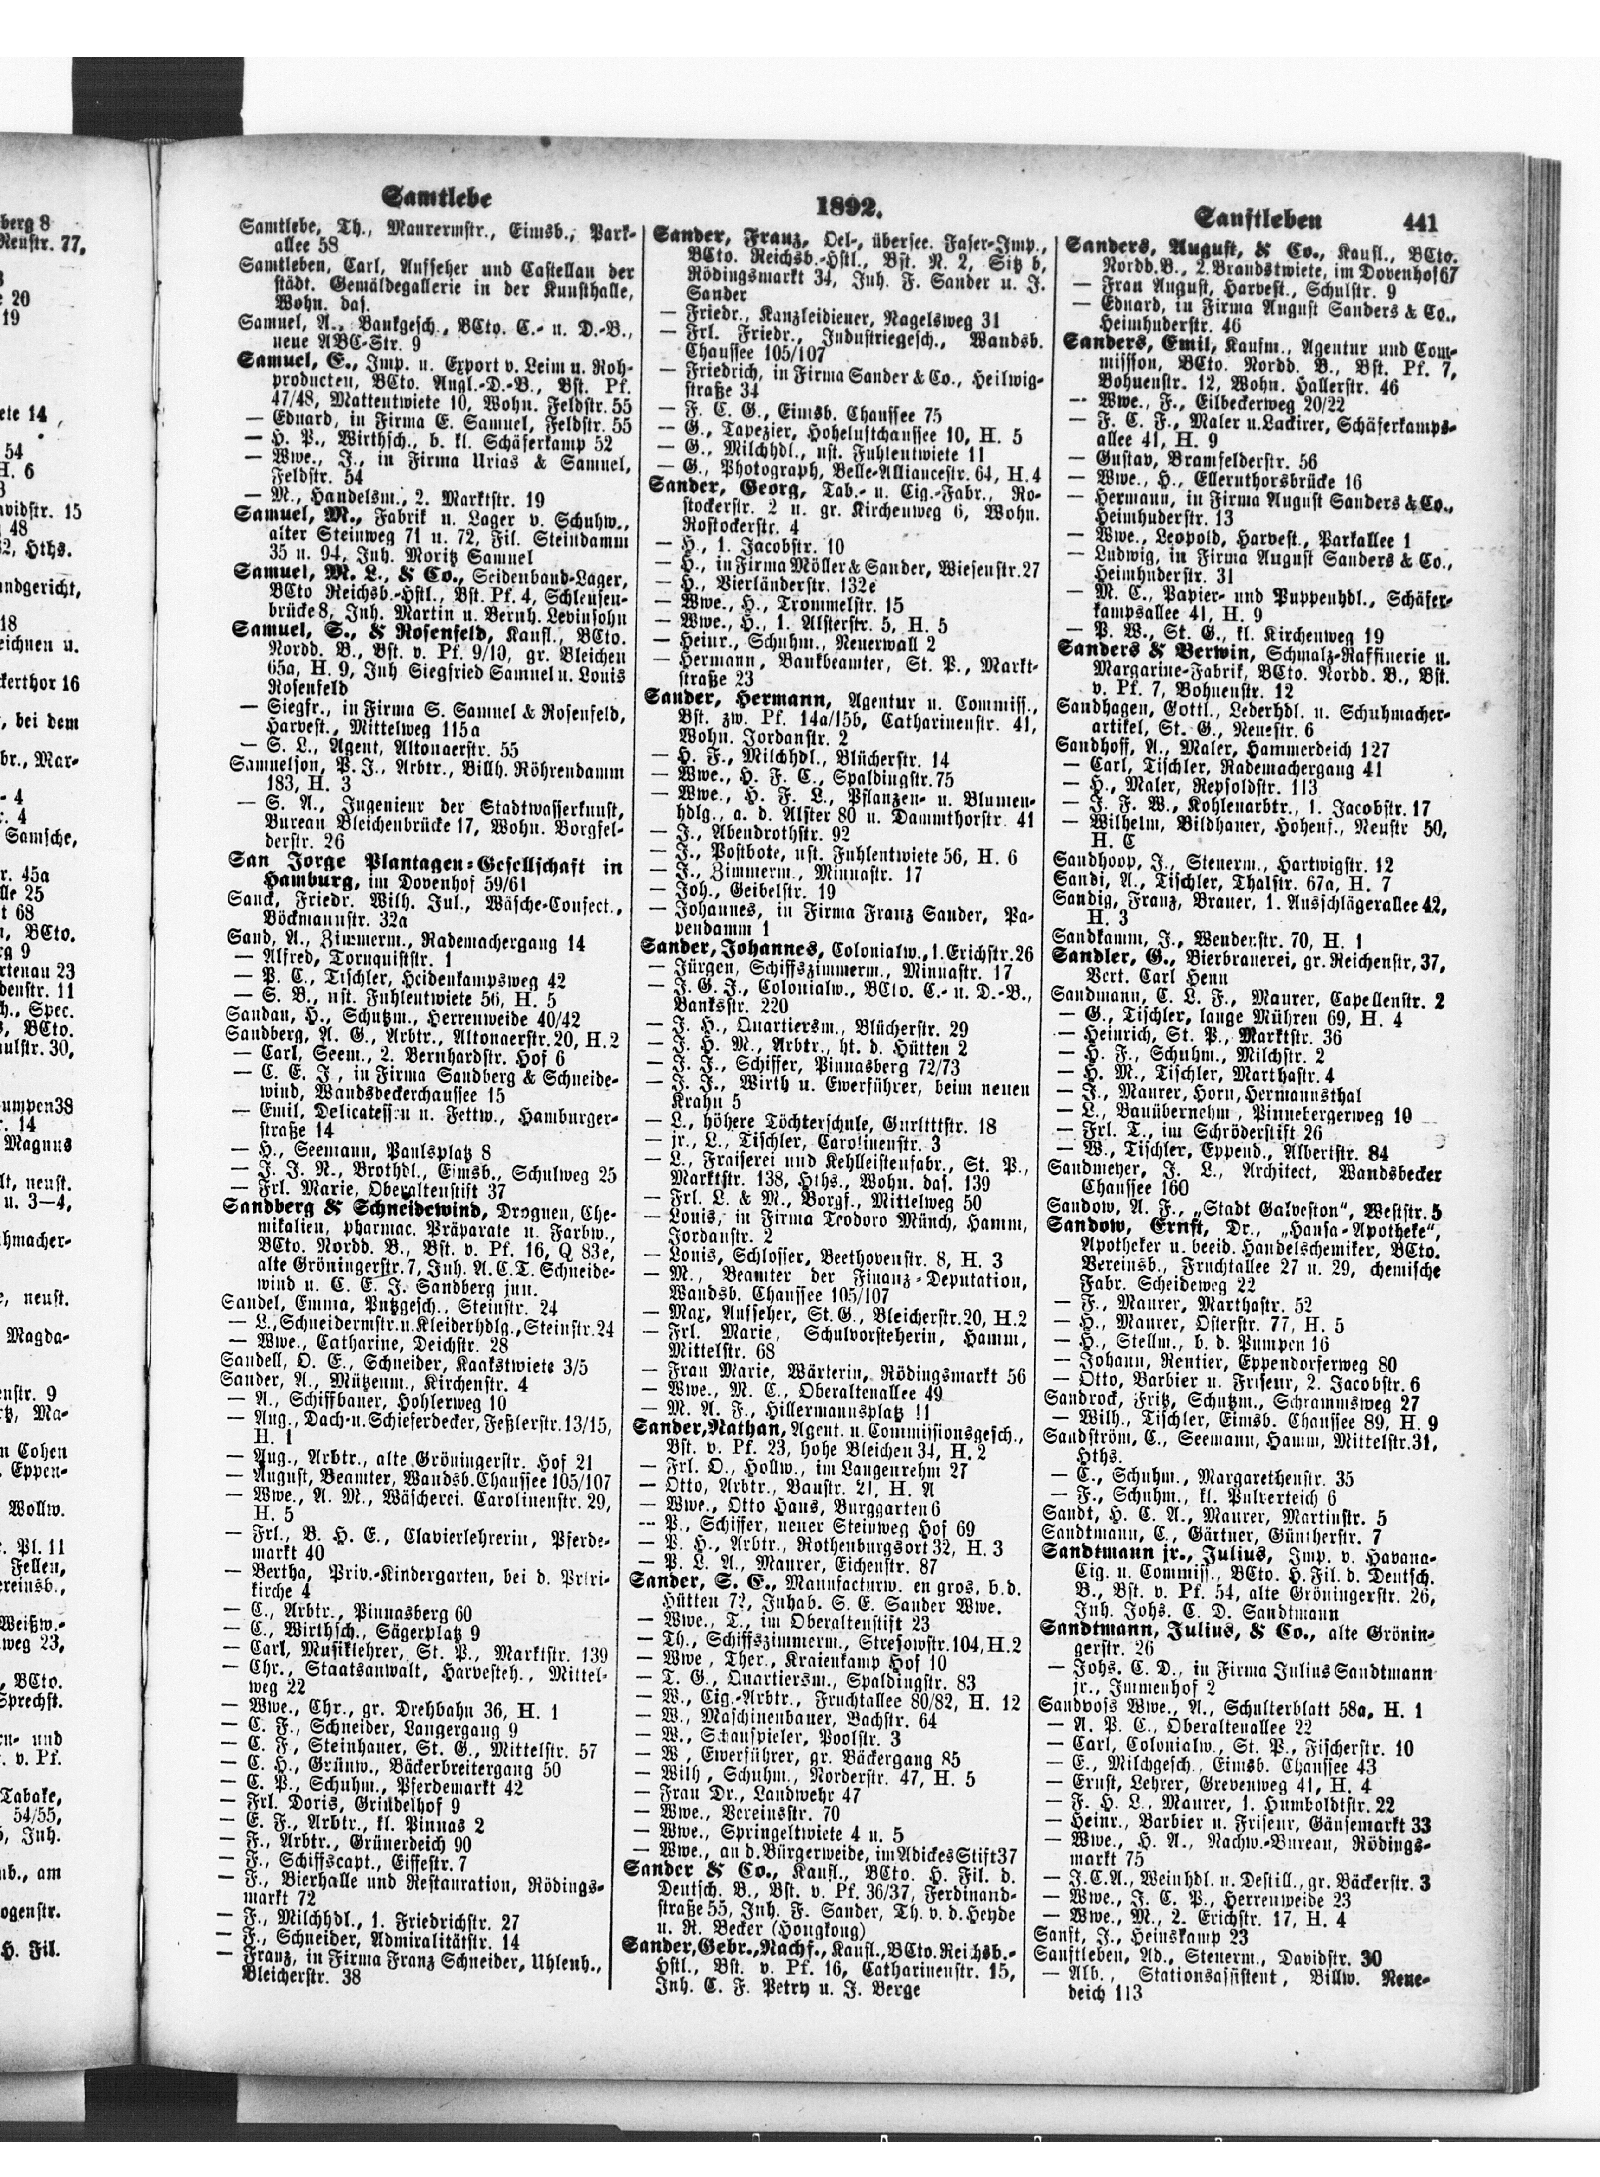 Samtlebe
1892.
Sanftleben 441
berg 8
Neustr. 77,
e 20
19
54
H. 6
48
Hths.
andgericht,
18
eichnen u.
kerthor 16
, bei dem
Samsche,
r. 45a
lle 25
t 68
BCto.
g 9
rtenau 23
denstr. 11
Spec.
BCto.
umpen 38
r. 14
Magnus
neust.
u. 3—4,
hmacher-
neust.
Magda-
enstr. 9
Ma-
n Cohen
Eppen-
Wollw.
Pl. 11
Fellen,
ereinsb.,
Weißw.-
weg 23,
BCto.
Sprechst.
und
v. Pf.
Tabake,
54/55,
Inh.
am
H. Fil.
Samtlebe, Th., Maurermstr., Eimsb., Park-
allee 58
Samtleben, Carl, Aufseher und Castellan der
städt. Gemäldegallerie in der Kunsthalle,
Wohn. das.
Samuel, A., Bankgesch., BCto. C.- u. D.-B.,
neue ABC-Str. 9
Samuel, E., Imp. u. Export v. Leim u. Roh-
producten, BCto. Angl.-D.-B., Bst. Pf.
47/48, Mattentwiete 10, Wohn. Feldstr. 55
— Eduard, in Firma E. Samuel, Feldstr. 55
— H. P., Wirthsch., b. kl. Schäferkamp 52
— Wwe., J., in Firma Urias & Samuel,
Feldstr. 54
— M., Handelsm., 2. Marktstr. 19
Samuel, M., Fabrik u. Lager v. Schuhw.,
alter Steinweg 71 u. 72, Fil. Steindamm
35 u. 94, Inh. Moritz Samuel
Samuel, M. L., & Co., Seidenband-Lager,
BCto Reichsb.-Hstl., Bst. Pf. 4, Schleusen-
brücke 8, Inh. Martin u. Bernh. Levinsohn
Samuel, S., & Rosenfeld, Kaufl., BCto.
Nordd. B., Bst. v. Pf. 9/10, gr. Bleichen
65a, H. 9, Inh Siegfried Samuel u. Louis
Rosenfeld
— Siegfr., in Firma S. Samuel & Rosenfeld,
Harvest., Mittelweg 115a
— S. L., Agent, Altonaerstr. 55
Samuelson, P. J., Arbtr., Billh. Röhrendamm
183, H. 3
— S. A., Ingenieur der Stadtwasserkunst,
Bureau Bleichenbrücke 17, Wohn. Borgfel-
derstr. 26
San Jorge Plantagen-Gesellschaft in
Hamburg, im Dovenhof 59/61
Sanck, Friedr. Wilh. Jul., Wäsche-Confect.,
Böckmannstr. 32a
Sand, A., Zimmerm., Rademachergang 14
— Alfred, Tornquiststr. 1
— P. C., Tischler, Heidenkampsweg 42
— S. B., nst. Fuhlentwiete 56, H. 5
Sandau, H., Schutzm., Herrenweide 40/42
Sandberg, A. G., Arbtr., Altonaerstr. 20, H. 2
— Carl, Seem., 2. Bernhardstr. Hof 6
— C. E. J., in Firma Sandberg & Schneide-
wind, Wandsbeckerchaussee 15
— Emil, Delicatessen u. Fettw., Hamburger-
straße 14
— H., Seemann, Paulsplatz 8
— J. J. N., Brothdl., Eimsb., Schulweg 25
— Frl. Marie, Oberaltenstift 37
Sandberg & Schneidewind, Droguen, Che-
mikalien, pharmac. Präparate u. Farbw.,
BCto. Nordd. B., Bst. v. Pf. 16, Q 83e,
alte Gröningerstr. 7, Inh. A. C. T. Schneide-
wind u. C. E. J. Sandberg jun.
Sandel, Emma, Putzgesch., Steinstr. 24
— L., Schneidermstr. u. Kleiderhdlg., Steinstr. 24
— Wwe., Catharine, Deichstr. 28
Sandell, O. E., Schneider, Kaakstwiete 3/5
Sander, A., Mützenm., Kirchenstr. 4
— A., Schiffbauer, Hohlerweg 10
— Aug., Dach- u. Schieferdecker, Feßlerstr. 13/15,
H. 1
— Aug., Arbtr., alte Gröningerstr. Hof 21
— August, Beamter, Wandsb. Chaussee 105/107
— Wwe., A. M., Wäscherei. Carolinenstr. 29,
H. 5
— Frl., B. H. E., Clavierlehrerin, Pferde-
markt 40
— Bertha, Priv.-Kindergarten, bei d. Petri-
kirche 4
— C., Arbtr., Pinnasberg 60
— C., Wirthsch., Sägerplatz 9
— Carl, Musiklehrer, St. P., Marktstr. 139
— Chr., Staatsanwalt, Harvesteh., Mittel-
weg 22
— Wwe., Chr., gr. Drehbahn 36, H. 1
— C. F., Schneider, Langergang 9
— C. F., Steinhauer, St. G., Mittelstr. 57
— C. H., Grünw., Bäckerbreitergang 50
— C. P., Schuhm., Pferdemarkt 42
— Frl. Doris, Grindelhof 9
— E. F., Arbtr., kl. Pinnas 2
— F., Arbtr., Grünerdeich 90
— F., Schiffscapt., Eiffestr. 7
— F., Bierhalle und Restauration, Rödings-
markt 72
— F., Milchhdl., 1. Friedrichstr. 27
— F., Schneider, Admiralitätstr. 14
— Franz, in Firma Franz Schneider, Uhlenh.,
Bleicherstr. 38
Sander, Franz, Oel-, übersee. Faser-Imp.,
BCto. Reichsb.-Hstl., Bst. N. 2, Sitz b,
Rödingsmarkt 34, Inh. F. Sander u. J.
Sander
— Friedr., Kanzleidiener, Nagelsweg 31
— Frl. Friedr., Industriegesch., Wandsb.
Chaussee 105/107
— Friedrich, in Firma Sander & Co., Heilwig-
straße 34
— F. C. G., Eimsb. Chaussee 75
— G., Tapezier, Hoheluftchaussee 10, H. 5
— G., Milchhdl., nst. Fuhlentwiete 11
— G., Photograph, Belle-Alliancestr. 64, H. 4
Sander, Georg, Tab.- u. Cig.-Fabr., Ro-
stockerstr. 2 u. gr. Kirchenweg 6, Wohn.
Rostockerstr. 4
— H., 1. Jacobstr. 10
— H., in Firma Möller & Sander, Wiesenstr. 27
— H., Vierländerstr. 132e
— Wwe., H., Trommelstr. 15
— Wwe., H., 1. Alsterstr. 5, H. 5
— Heinr., Schuhm., Neuerwall 2
— Hermann, Bankbeamter, St. P., Markt-
straße 23
Sander, Hermann, Agentur u. Commiss.,
Bst. zw. Pf. 14a/15b, Catharinenstr. 41,
Wohn. Jordanstr. 2
— H. F., Milchhdl., Blücherstr. 14
— Wwe., H. F. C., Spaldingstr. 75
— Wwe., H. F. L., Pflanzen- u. Blumen-
hdlg., a. d. Alster 80 u. Dammthorstr. 41
— J., Abendrothstr. 92
— J., Postbote, nst. Fuhlentwiete 56, H. 6
— J., Zimmerm., Minnastr. 17
— Joh., Geibelstr. 19
— Johannes, in Firma Franz Sander, Pa-
pendamm 1
Sander, Johannes, Colonialw., 1. Erichstr. 26
— Jürgen, Schiffszimmerm., Minnastr. 17
— J. G. J., Colonialw., BCto. C.- u. D.-B.,
Banksstr. 220
— J. H., Quartiersm., Blücherstr. 29
— J. H. M., Arbtr., ht. d. Hütten 2
— J. J., Schiffer, Pinnasberg 72/73
— J. J., Wirth u. Ewerführer, beim neuen
Krahn 5
— L., höhere Töchterschule, Gurlittstr. 18
— jr., L., Tischler, Carolinenstr. 3
— L., Fraiserei und Kehlleistenfabr., St. P.,
Marktstr. 138, Hths., Wohn. das. 139
— Frl. L. & M., Borgf., Mittelweg 50
— Louis, in Firma Teodoro Münch, Hamm,
Jordanstr. 2
— Louis, Schlosser, Beethovenstr. 8, H. 3
— M., Beamter der Finanz-Deputation,
Wandsb. Chaussee 105/107
— Max, Aufseher, St. G., Bleicherstr. 20, H. 2
— Frl. Marie, Schulvorsteherin, Hamm,
Mittelstr. 68
— Frau Marie, Wärterin, Rödingsmarkt 56
— Wwe., M. C., Oberaltenallee 49
— M. A. F., Hillermannsplatz 11
Sander, Nathan, Agent. u. Commissionsgesch.,
Bst. v. Pf. 23, hohe Bleichen 34, H. 2
— Frl. O., Hollw., im Langenrehm 27
— Otto, Arbtr., Baustr. 21, H. A
— Wwe., Otto Hans, Burggarten 6
— P., Schiffer, neuer Steinweg Hof 69
— P. H., Arbtr., Rothenburgsort 32, H. 3
— P. L. A., Maurer, Eichenstr. 87
Sander, S. E., Manufacturw. en gros, b. d.
Hütten 72, Inhab. S. E. Sander Wwe.
— Wwe., T., im Oberaltenstift 23
— Th., Schiffszimmerm., Stresowstr. 104, H. 2
— Wwe, Ther., Kraienkamp Hof 10
— T. G., Quartiersm., Spaldingstr. 83
— W., Cig.-Arbtr., Fruchtallee 80/82, H. 12
— W., Maschinenbauer, Bachstr. 64
— W., Schauspieler, Poolstr. 3
— W, Ewerführer, gr. Bäckergang 85
— Wilh, Schuhm., Norderstr. 47, H. 5
— Frau Dr., Landwehr 47
— Wwe., Vereinsstr. 70
— Wwe., Springeltwiete 4 u. 5
— Wwe., an d. Bürgerweide, im Adickes Stift 37
Sander & Co., Kaufl., BCto. H. Fil. d.
Deutsch. B., Bst. v. Pf. 36/37, Ferdinand-
straße 55, Inh. F. Sander, Th. v. d. Heyde
u. R. Becker (Hongkong)
Sander, Gebr., Nachf., Kaufl., BCto. Reichsb.-
Hstl., Bst. v. Pf. 16, Catharinenstr. 15,
Inh. C. F. Petry u. J. Berge
Sanders, August, & Co., Kaufl., BCto.
Nordd. B., 2. Brandstwiete, im Dovenhof 67
— Frau August, Harvest., Schulstr. 9
— Eduard, in Firma August Sanders & Co.,
Heimhuderstr. 46
Sanders, Emil, Kaufm., Agentur und Com-
mission, BCto. Nordd. B., Bst. Pf. 7,
Bohnenstr. 12, Wohn. Hallerstr. 46
— Wwe., F., Eilbeckerweg 20/22
— F. C. F., Maler u. Lackirer, Schäferkamps-
allee 41, H. 9
— Gustav, Bramfelderstr. 56
— Wwe., H., Ellernthorsbrücke 16
— Hermann, in Firma August Sanders & Co.,
Heimhuderstr. 13
— Wwe., Leopold, Harvest., Parkallee 1
— Ludwig, in Firma August Sanders & Co.,
Heimhuderstr. 31
— M. C., Papier- und Puppenhdl., Schäfer-
kampsallee 41, H. 9
— P. W., St. G., kl. Kirchenweg 19
Sanders & Berwin, Schmalz-Raffinerie u.
Margarine-Fabrik, BCto. Nordd. B., Bst.
v. Pf. 7, Bohnenstr. 12
Sandhagen, Gottl., Lederhdl. u. Schuhmacher-
artikel, St. G., Neuestr. 6
Sandhoff, A., Maler, Hammerdeich 127
— Carl, Tischler, Rademachergang 41
— H., Maler, Repsoldstr. 113
— J. F. W., Kohlenarbtr., 1. Jacobstr. 17
— Wilhelm, Bildhauer, Hohenf., Neustr 50,
H. C
Sandhoop, J., Steuerm., Hartwigstr. 12
Sandi, A., Tischler, Thalstr. 67a, H. 7
Sandig, Franz, Brauer, 1. Ausschlägerallee 42,
H. 3
Sandkamm, J., Wendenstr. 70, H. 1
Sandler, G., Bierbrauerei, gr. Reichenstr. 37,
Vert. Carl Henn
Sandmann, C. L. F., Maurer, Capellenstr. 2
— G., Tischler, lange Mühren 69, H. 4
— Heinrich, St. P., Marktstr. 36
— H. F., Schuhm., Milchstr. 2
— H. M., Tischler, Marthastr. 4
— J., Maurer, Horn, Hermannsthal
— L., Bauübernehm, Pinnebergerweg 10
— Frl. T., im Schröderstift 26
— W., Tischler, Eppend., Albertstr. 84
Sandmeyer, J. L., Architect, Wandsbecker
Chaussee 160
Sandow, A. F., „Stadt Galveston“, Weststr. 5
Sandow, Ernst, Dr., „Hansa-Apotheke“,
Apotheker u. beeid. Handelschemiker, BCto.
Vereinsb., Fruchtallee 27 u. 29, chemische
Fabr. Scheideweg 22
— F., Maurer, Marthastr. 52
— H., Maurer, Osterstr. 77, H. 5
— H., Stellm., b. d. Pumpen 16
— Johann, Rentier, Eppendorferweg 80
— Otto, Barbier u. Friseur, 2. Jacobstr. 6
Sandrock, Fritz, Schutzm., Schrammsweg 27
— Wilh., Tischler, Eimsb. Chaussee 89, H. 9
Sandström, C., Seemann, Hamm, Mittelstr. 31,
Hths.
— C., Schuhm., Margarethenstr. 35
— F., Schuhm., kl. Pulverteich 6
Sandt, H. C. A., Maurer, Martinstr. 5
Sandtmann, C., Gärtner, Güntherstr. 7
Sandtmann jr., Julius, Imp. v. Havana-
Cig. u. Commiss., BCto. H. Fil. d. Deutsch.
B., Bst. v. Pf. 54, alte Gröningerstr. 26,
Inh. Johs. C. D. Sandtmann
Sandtmann, Julius, & Co., alte Grönin-
gerstr. 26
— Johs. C. D., in Firma Julius Sandtmann
jr., Immenhof 2
Sandvoss Wwe., A., Schulterblatt 58a, H. 1
— A. P. C., Oberaltenallee 22
— Carl, Colonialw., St. P., Fischerstr. 10
— E., Milchgesch., Eimsb. Chaussee 43
— Ernst, Lehrer, Grevenweg 41, H. 4
— F. H. L., Maurer, 1. Humboldtstr. 22
— Heinr., Barbier u. Friseur, Gänsemarkt 33
— Wwe., H. A., Nachw.-Bureau, Rödings-
markt 75
— J. C. A., Weinhdl. u. Destill., gr. Bäckerstr. 3
— Wwe., J. C. P., Herrenweide 23
— Wwe., M., 2. Erichstr. 17, H. 4
Sanft, J., Heinskamp 23
Sanftleben, Ad., Steuerm., Davidstr. 30
— Alb., Stationsassistent, Billw. Neue-
deich 113